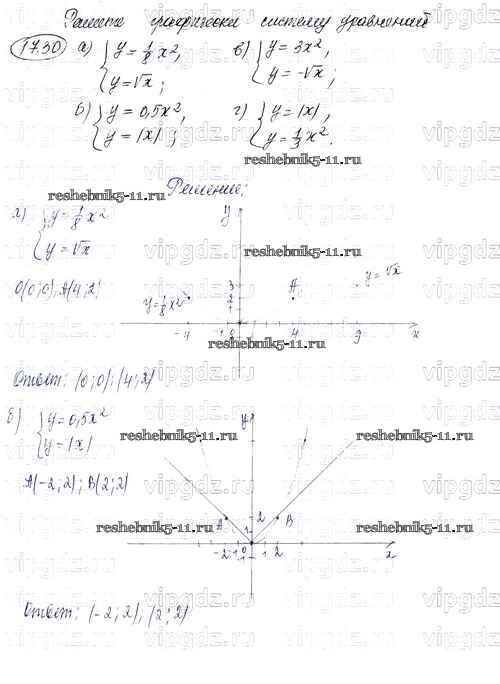 Решите графически систему уравнений
17.30 а) { y = 1/8 x², y = √x ; в) { y = 3x², y = -√x ;
б) { y = 0,5x², y = |x| ; г) { y = |x|, y = 1/3 x².
reshebnik5-11.ru
Решение:
reshebnik5-11.ru
а) { y = 1/8 x² y = √x
y
reshebnik5-11.ru
O(0;0); A(4;2)
y = 1/8 x²
3
2
1
A
y = √x
-4 0 4 9 x
reshebnik5-11.ru
Ответ: (0;0); (4;2)
б) { y = 0,5x² y = |x|
y
reshebnik5-11.ru reshebnik5-11.ru
A(-2;2); B(2;2)
A 2 B
1
reshebnik5-11.ru reshebnik5-11.ru
-2 -1 0 1 2 x
Ответ: (-2;2); (2;2)
vipgdz.ru